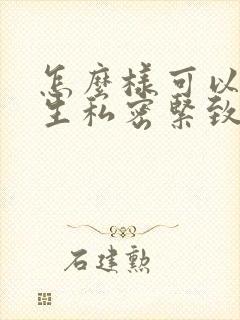 怎麼樣可以
生私密緊致
石建勲